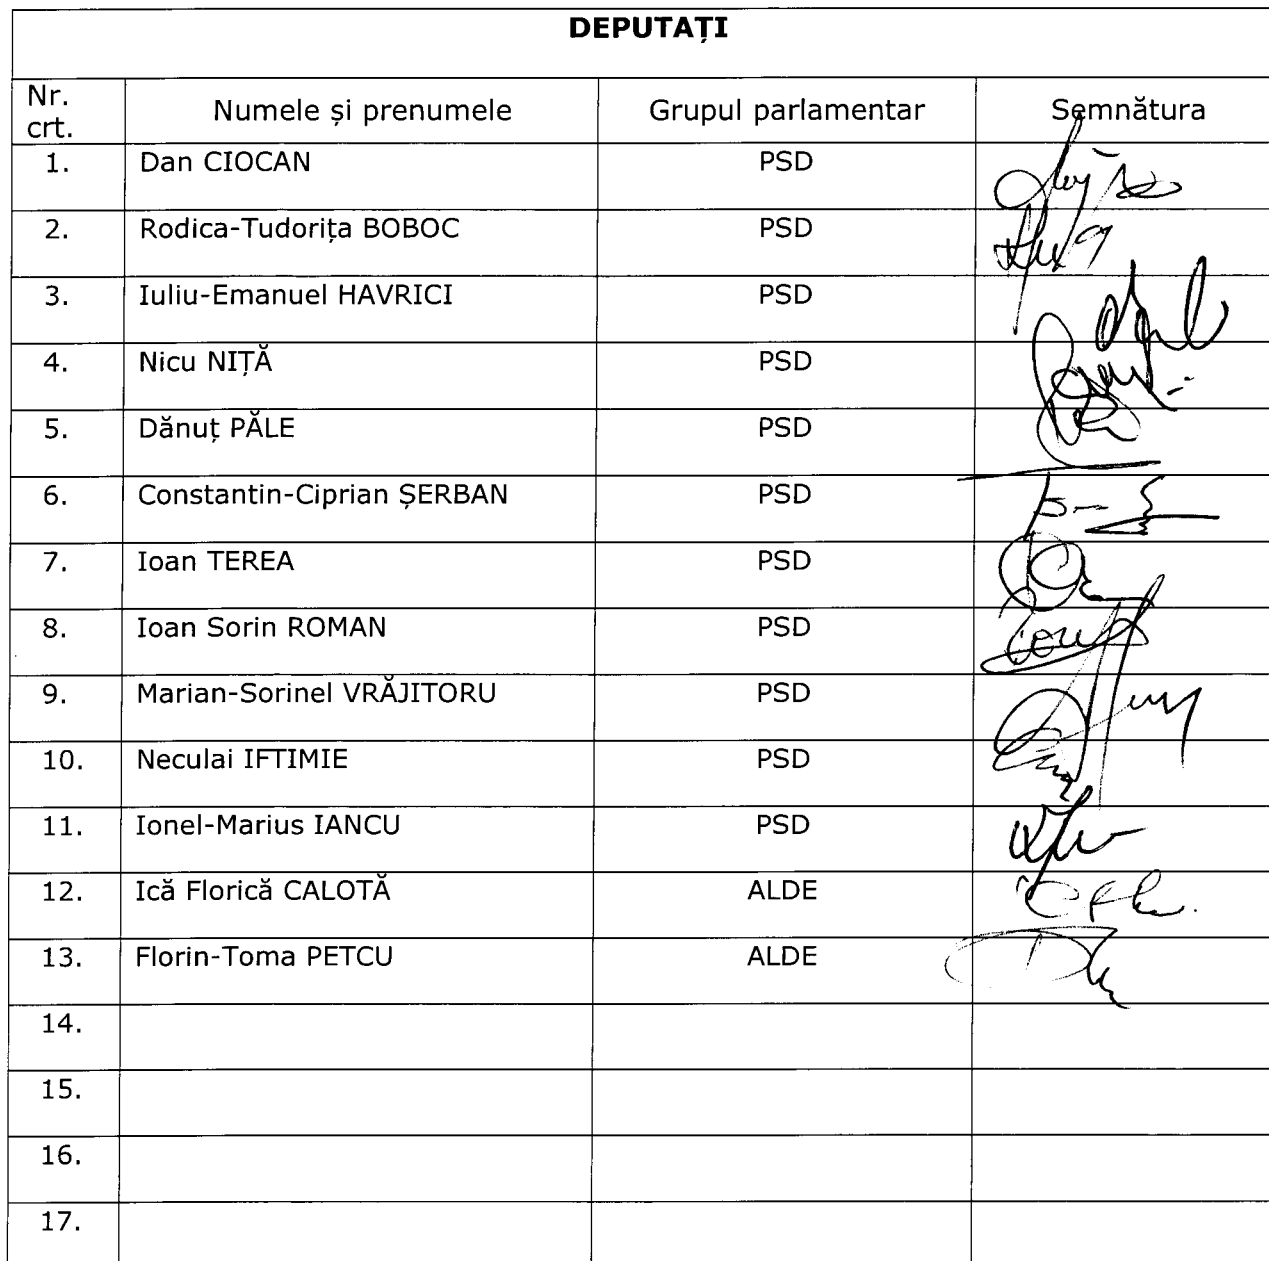 DEPUTAȚI
Nr. crt. Numele și prenumele Grupul parlamentar Semnătura
1. Dan CIOCAN PSD
2. Rodica-Tudorița BOBOC PSD
3. Iuliu-Emanuel HAVRICI PSD
4. Nicu NIȚĂ PSD
5. Dănuț PĂLE PSD
6. Constantin-Ciprian ȘERBAN PSD
7. Ioan TEREA PSD
8. Ioan Sorin ROMAN PSD
9. Marian-Sorinel VRĂJITORU PSD
10. Neculai IFTIMIE PSD
11. Ionel-Marius IANCU PSD
12. Ică Florică CALOTĂ ALDE
13. Florin-Toma PETCU ALDE
14.
15.
16.
17.